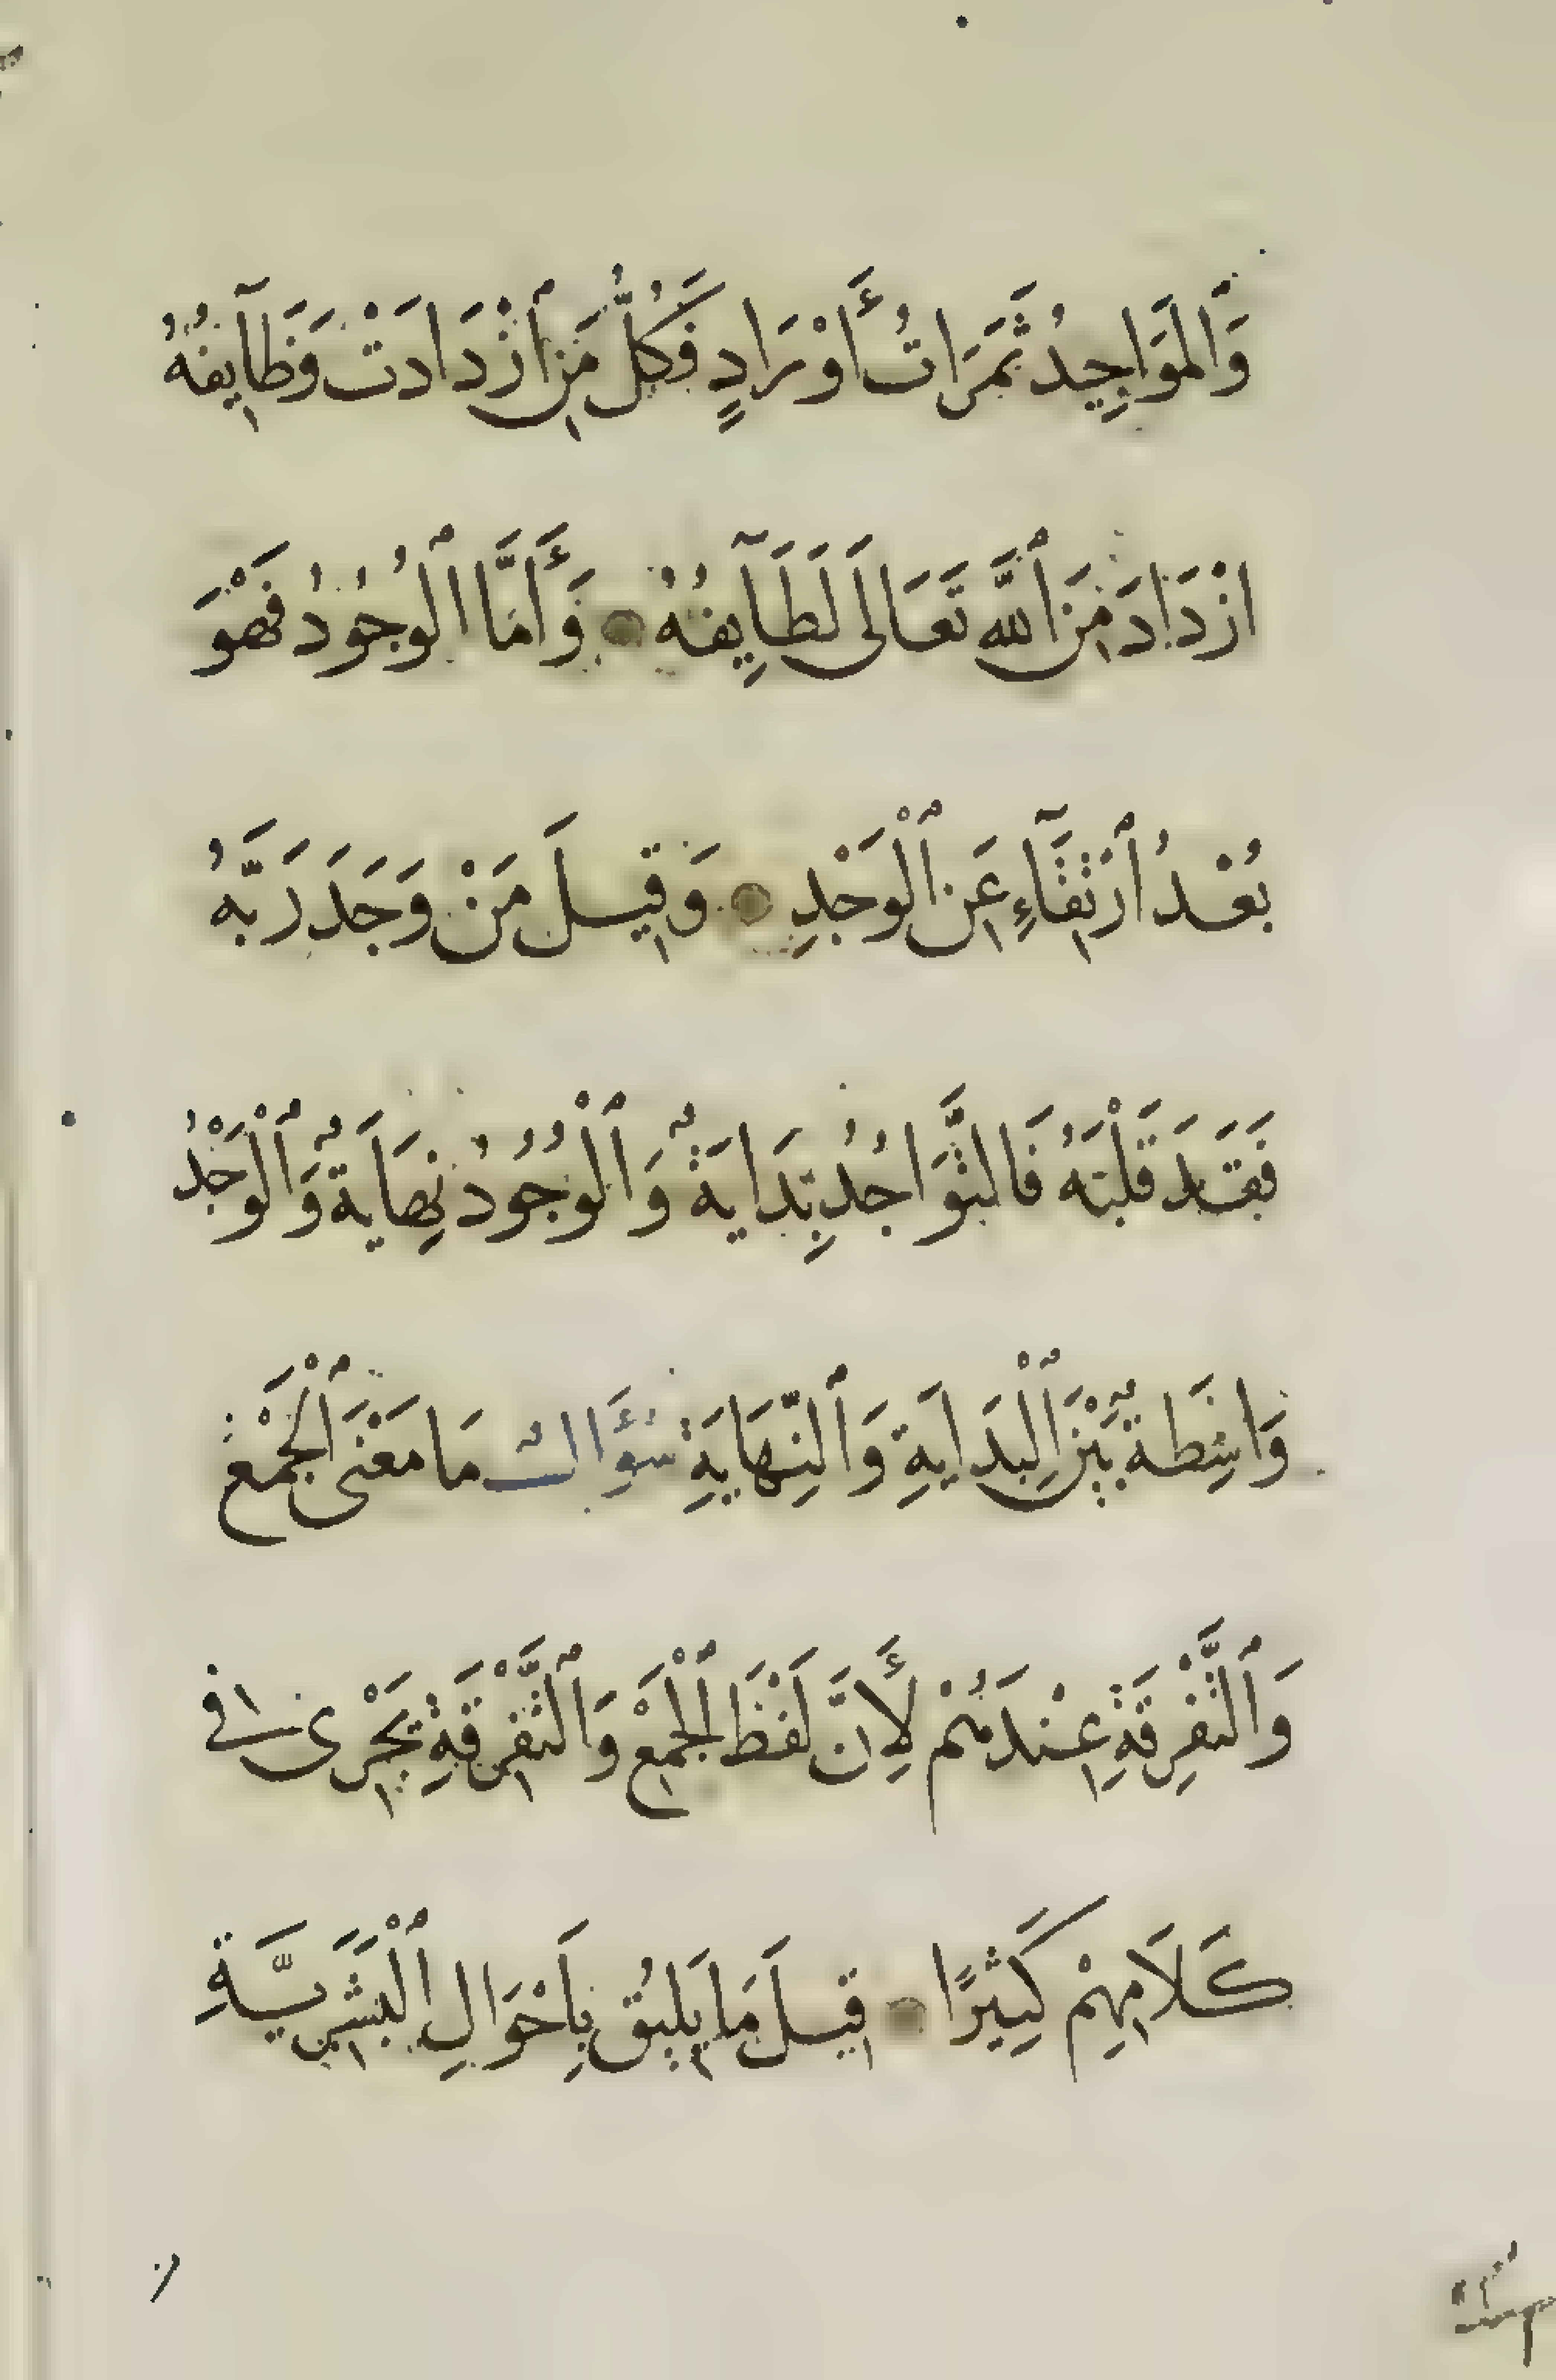 وَالْمَوَاجِيدُ ثَمَرَاتُ أَوْرَادٍ فَكُلُّ مَنِ ٱزْدَادَتْ وَظَآيِفُهُ
ازْدَادَ مِنَ ٱللَّهِ تَعَالَى لَطَآيِفُهُ وَأَمَّا ٱلْوُجُودُ فَهْوَ
بُعْدُ ٱرْتِقَآءٍ عَنِ ٱلْوَجْدِ وَقِيلَ مَنْ وَجَدَ رَبَّهُ
فَقَدَ قَلْبَهُ فَالتَّوَاجُدُ بِدَايَةٌ وَٱلْوُجُودُ نِهَايَةٌ وَٱلْوَجْدُ
وَاسِطَةٌ بَيْنَ ٱلْبِدَايَةِ وَٱلنِّهَايَةِ سُؤَال مَا مَعْنَى ٱلْجَمْعِ
وَٱلتَّفْرِقَةِ عِنْدَهُمْ لِأَنَّ لَفْظَ ٱلْجَمْعِ وَٱلتَّفْرِقَةِ يَجْرِى فى
كَلَامِهِمْ كَثِيرًا قِيلَ مَا يَلِيقُ بِاَحْوَالِ ٱلْبَشَرِيَّةِ